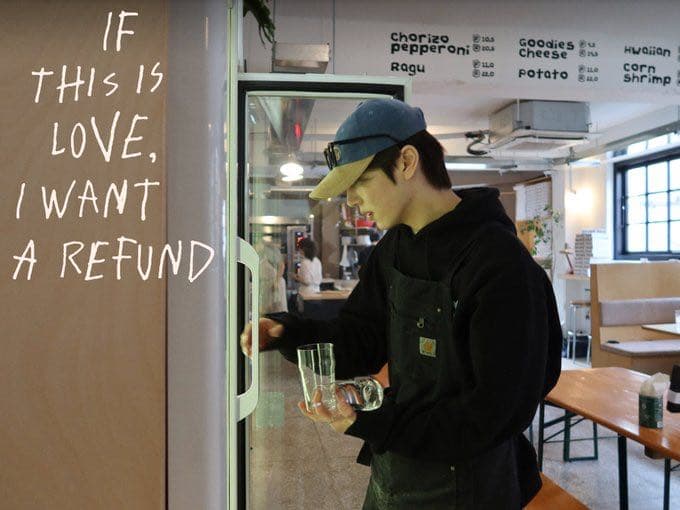 IF
THIS IS
LOVE,
I WANT
A REFUND
chorizo
pepperoni
Ragu
Goodies
cheese
potato
Hwaiian
corn
shrimp